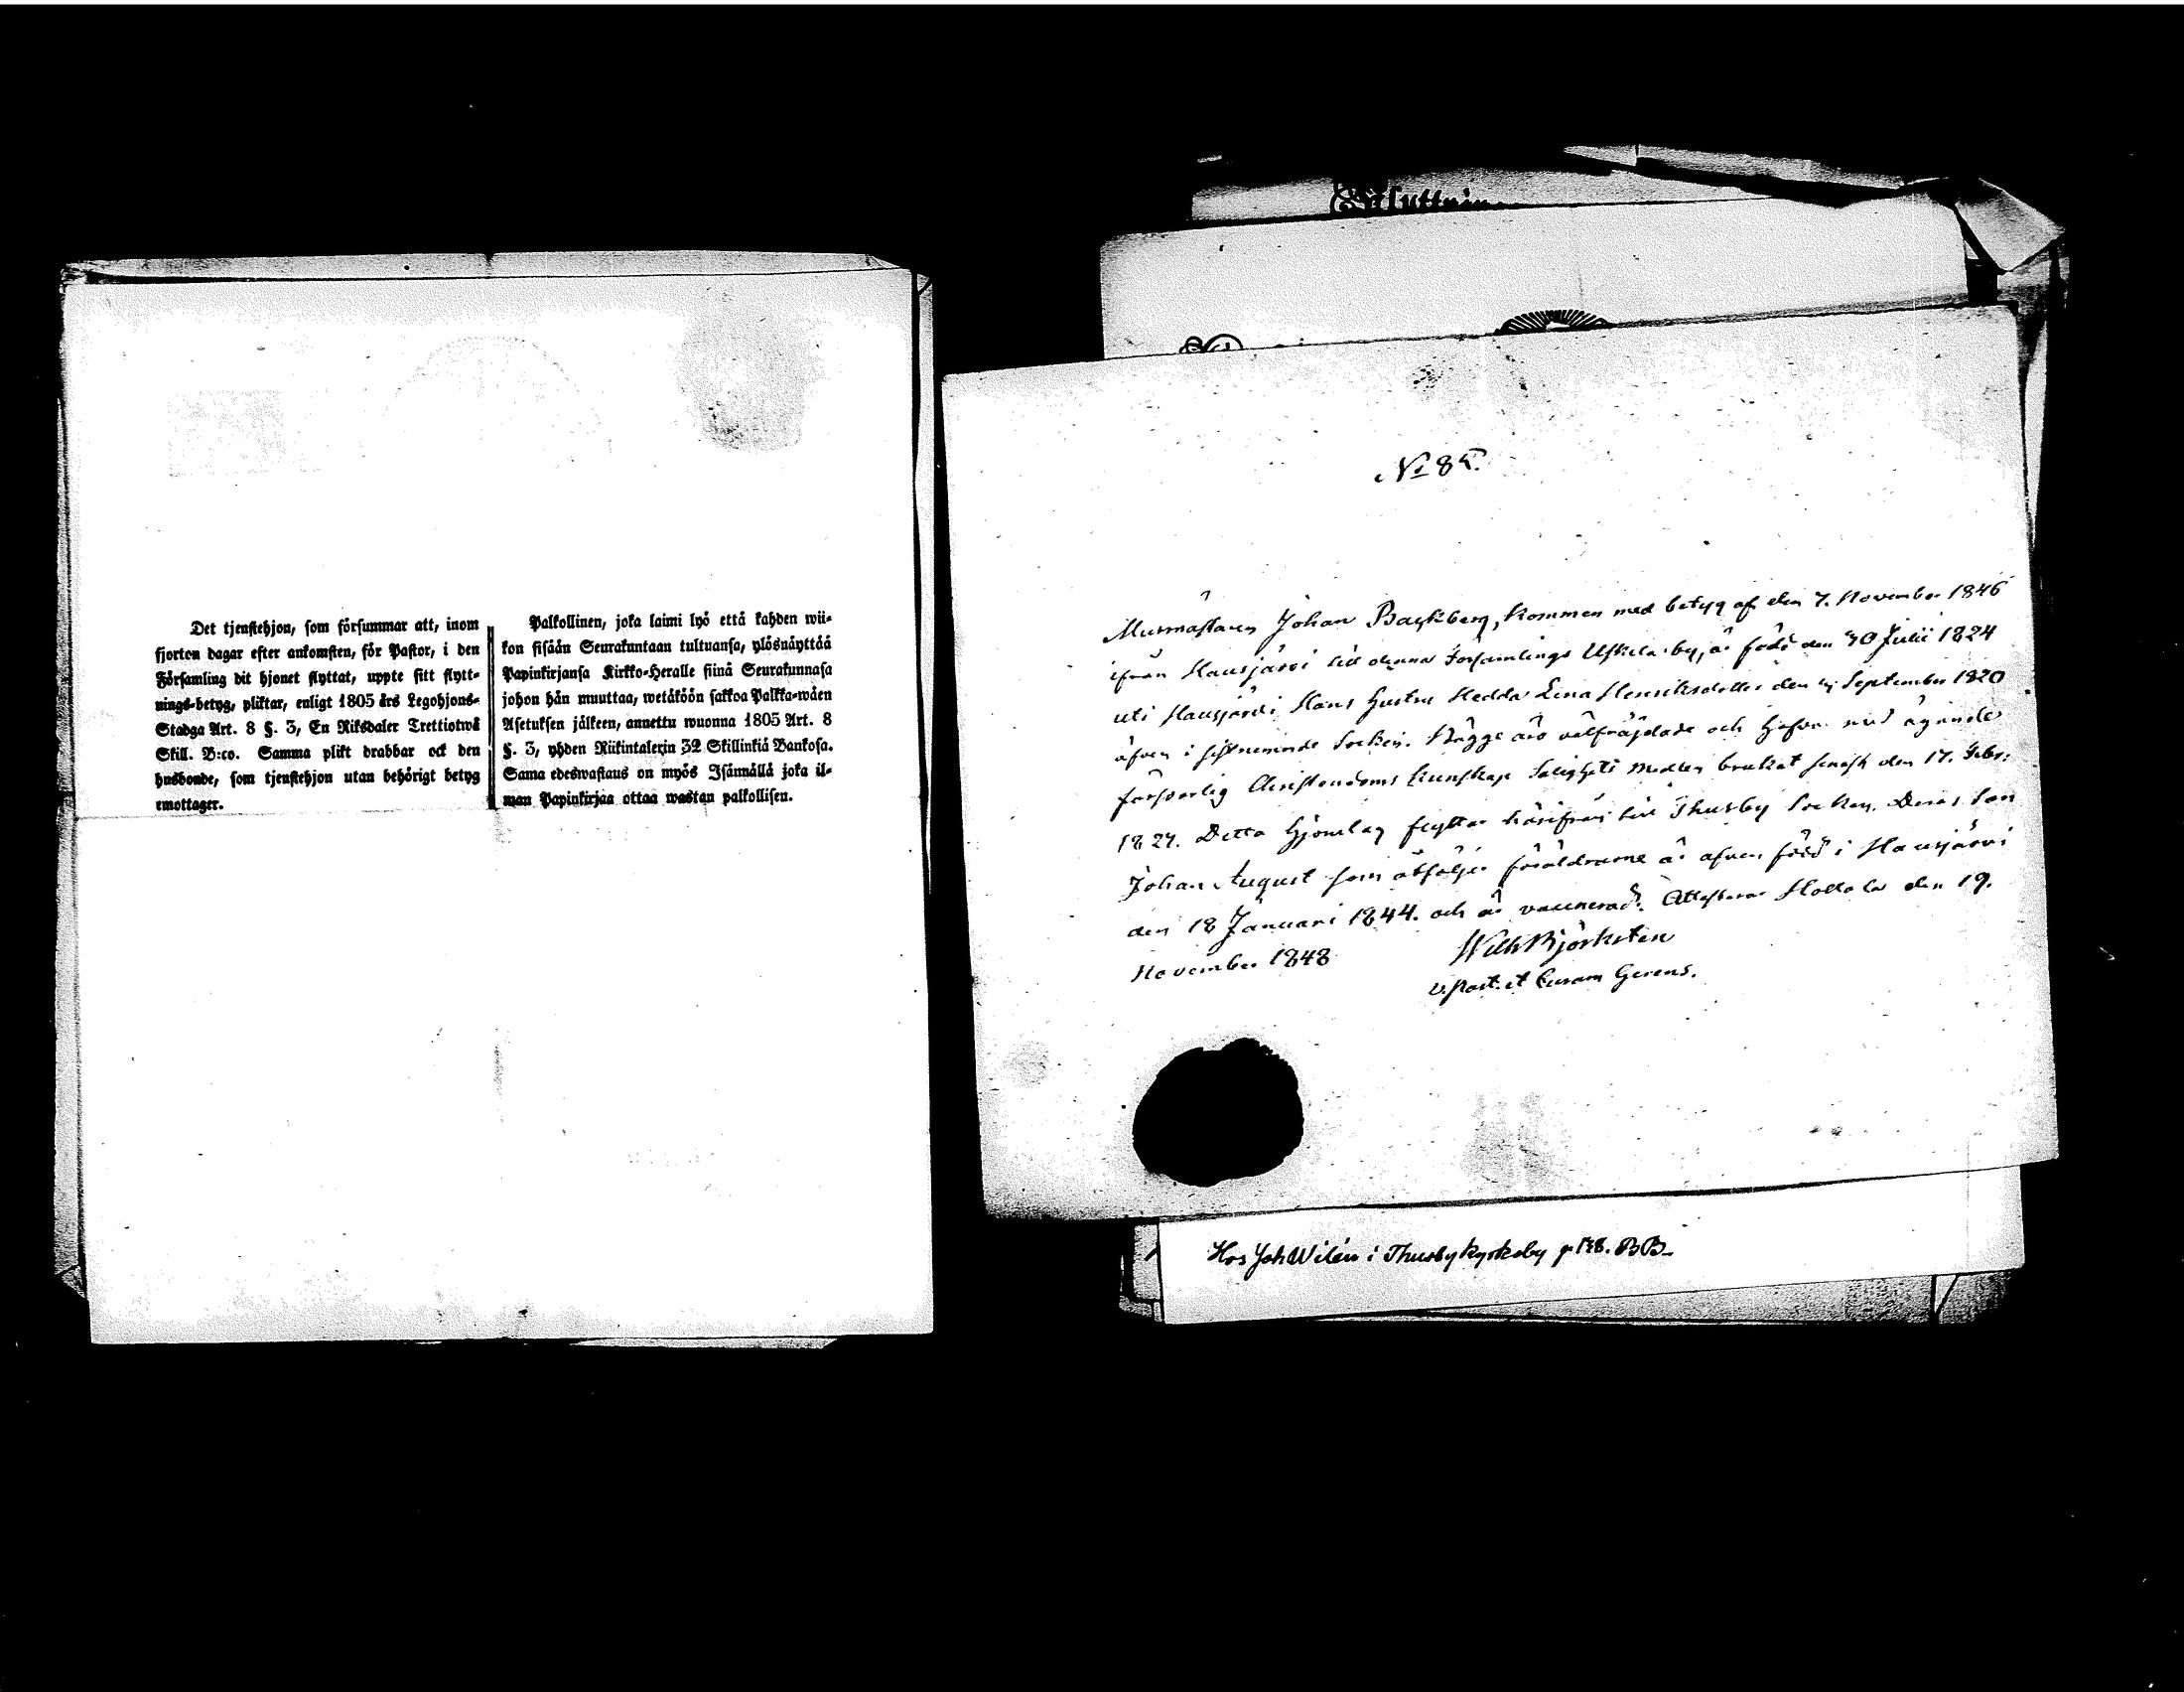 Det tjenstehjon, som försummar att, inom
fjorton dagar efter ankomsten, för Pastor, i den
Församling dit hjonet flyttat, uppte sitt flytt-
nings-betyg, pliktar, enligt 1805 års Legohjons-
Stadga Art. 8 §. 3, En Riksdaler Trettiotwå
Skill. B:co. Samma plikt drabbar ock den
husbonde, som tjenstehjon utan behörigt betyg
emottager.
Palkollinen, joka laimi lyö että kahden wii-
kon sisään Seurakuntaan tultuansa, ylösnäyttää
Papinkirjansa Kirkko-Heralle siinä Seurakunnasa
johon hän muuttaa, wetäköön sakkoa Palkka-wäen
Asetuksen jälkeen, annettu wuonna 1805 Art. 8
§. 3, yhden Riikintalerin 32 Skillinkiä Bankosa.
Sama edeswastaus on myös Isännällä joka il-
man Papinkirjaa ottaa wastan palkollisen.
Utflyttnin
No 85.
Murmästaren Johan Backberg, kommen med betyg af den 7. November 1846
ifrån Hausjärvi till denna Församlings Uskila by, är född den 30 Julii 1824
uti Hausjärvi Hans Hustru Hedda Lena Henriksdotter den September 1820
äfven i sistnemnde Socken. Bägge äro välfräjdade och hafva med ägande
försvarlig Christendoms kunskap Salighets medlen brukat senast den 17. Febr:
1827. Detta Hjonelag flyttar härifrån till Thusby Socken. Deras Son
Johan August som åtföljer föräldrarne är äfven född i Hausjärvi
den 18 Januari 1844. och är vaccinerad. Attesterar Hollola den 19.
November 1848
Wilh Björksten
v. Past. et Curam Gerens.
Hos Joh Wilén i Thusby kyrkoby p 138. BB.